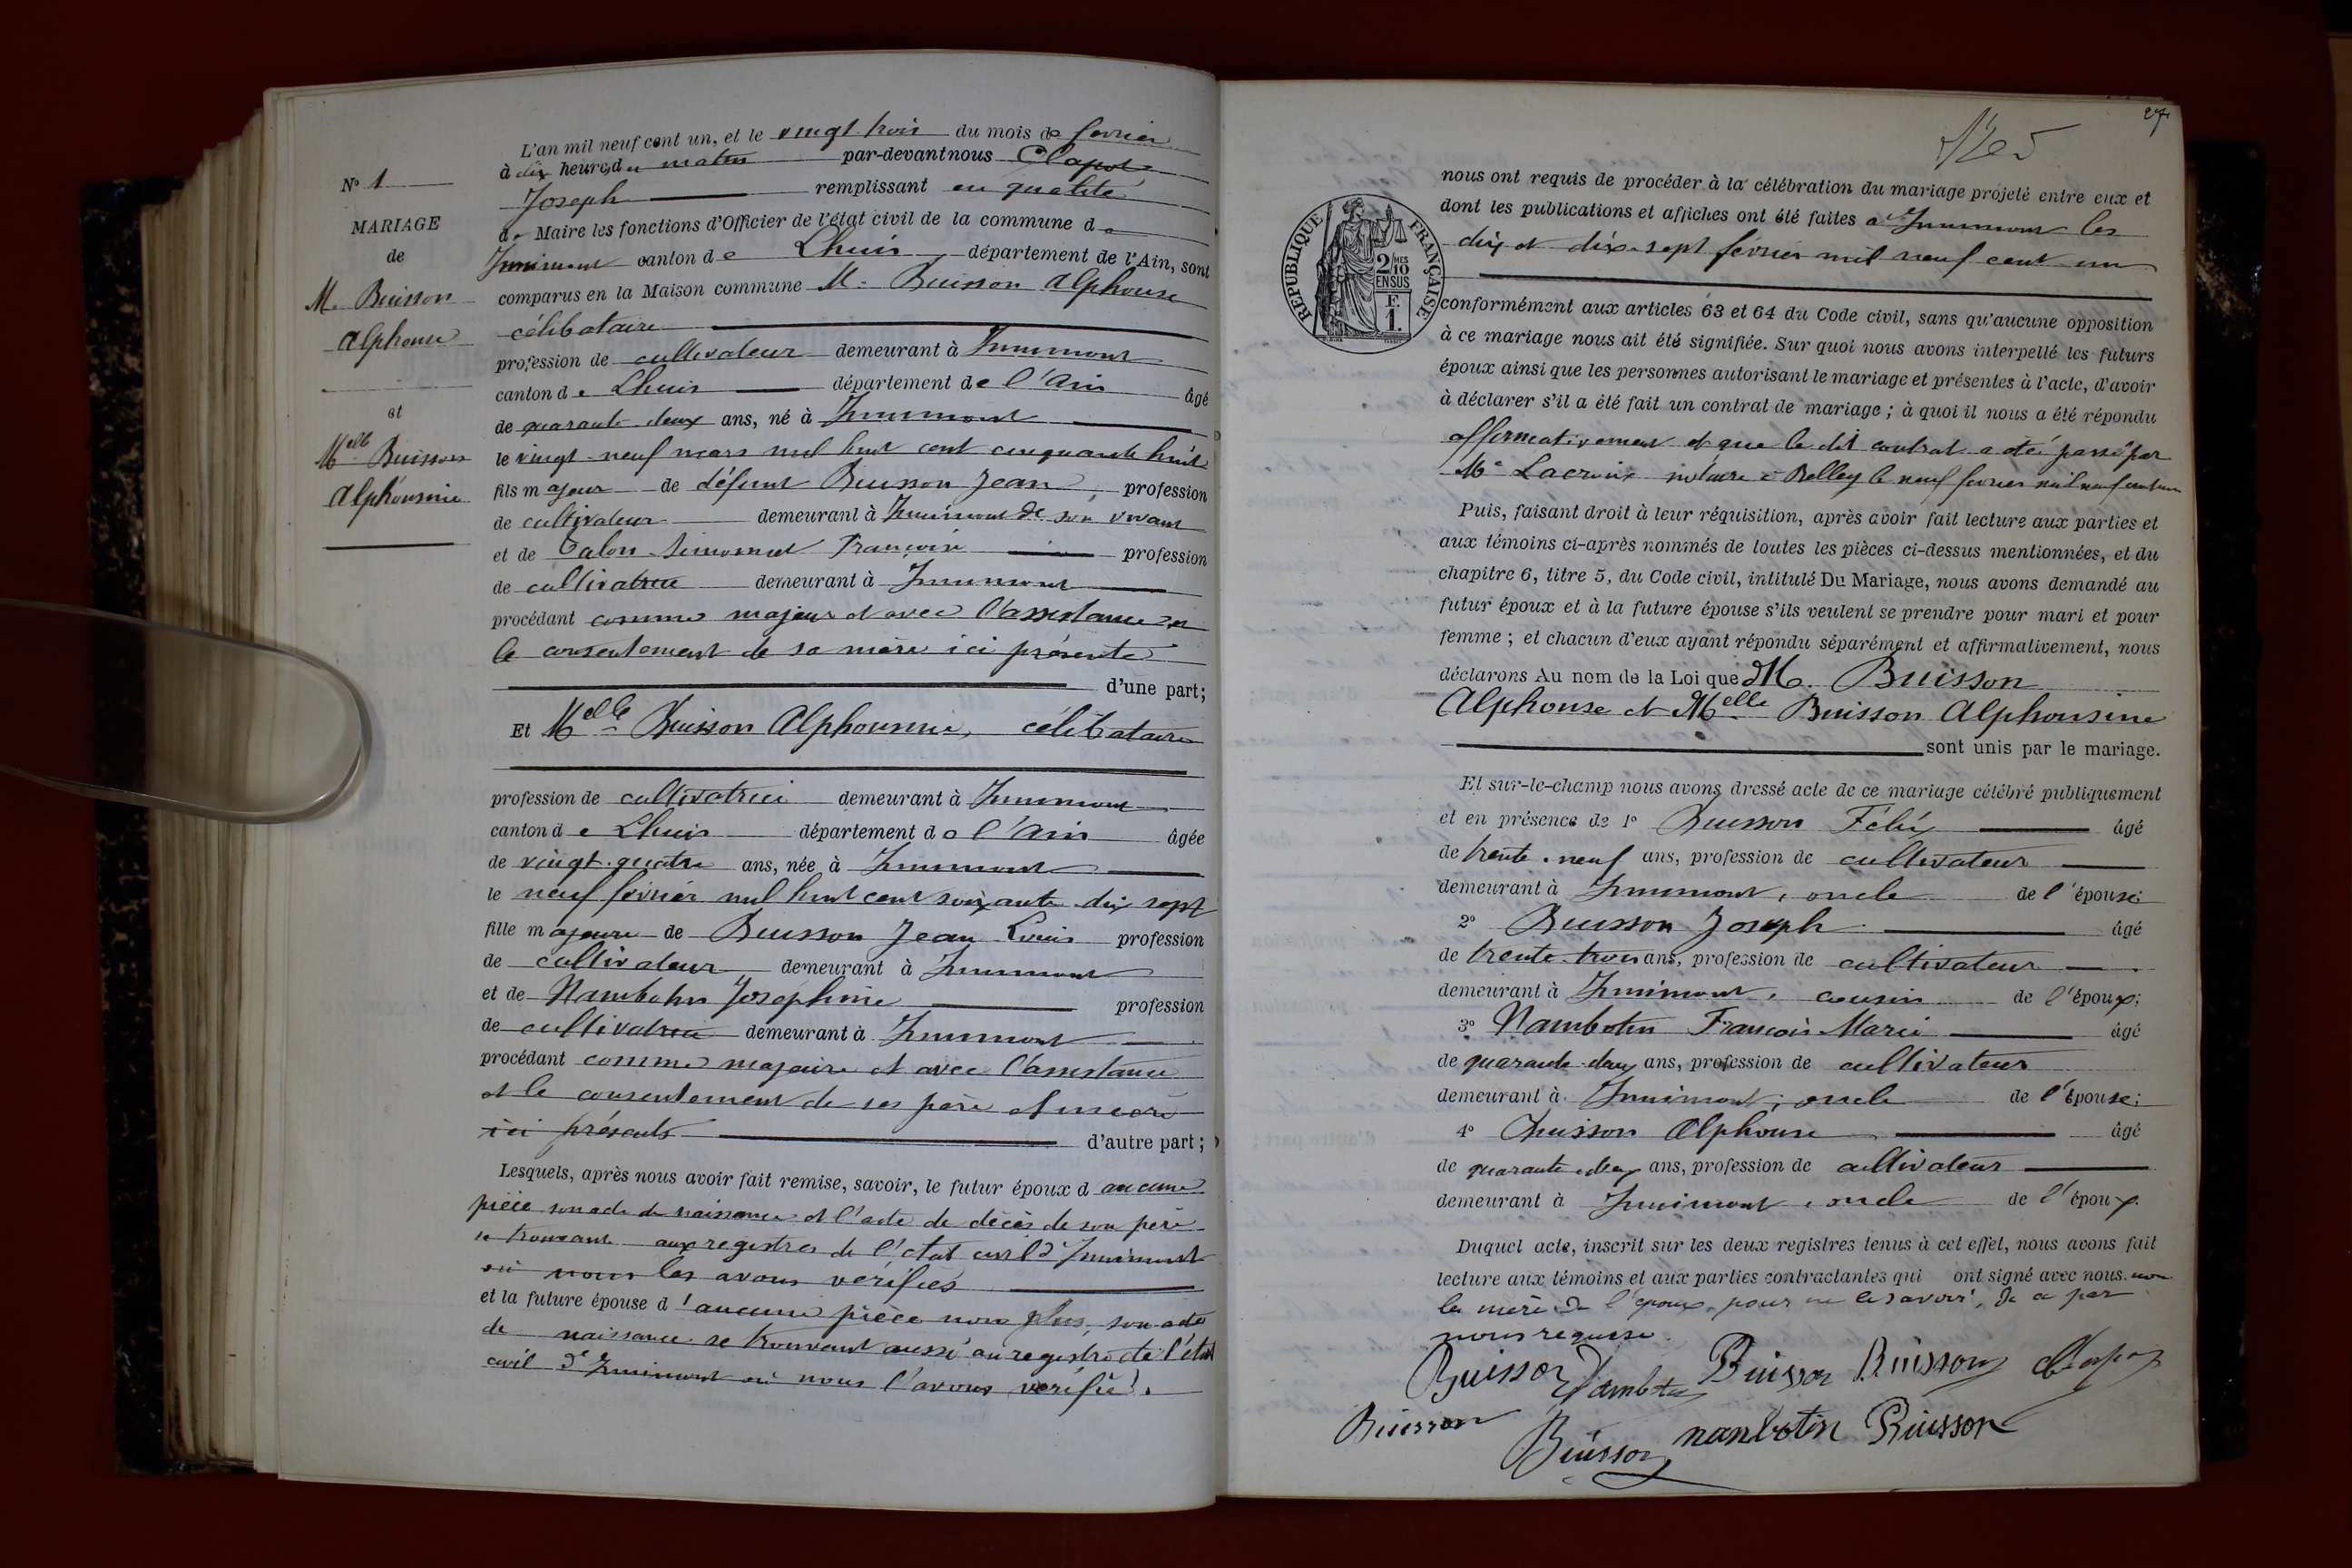 L'an mil neuf cent un, et le vingt trois du mois de fevrier
à dix heures du matin par-devant nous Clapot
Joseph remplissant en qualité
de Maire les fonctions d'Officier de l'état civil de la commune d
Innimont canton de Lhuis département de l'Ain, sont
comparus en la Maison commune M. Buisson Alphonse
célibataire
profession de cultivateur demeurant à Innimont
canton de Lhuis département de l'Ain âgé
de quarante deux ans, né à Innimont
le vingt-neuf mars mil huit cent cinquante huit
fils majeur de défunt Buisson Jean, profession
de cultivateur demeurant à Innimont de son vivant
et de Talon Simonnet Françoise profession
de cultivatrice demeurant à Innimont
procédant comme majeur et avec l'assistance et
le consentement de sa mère ici présente
d'une part;
Et Melle Buisson Alphonsine, célibataire
profession de cultivatrice demeurant à Innimont
canton de Lhuis département de l'Ain âgée
de vingt-quatre ans, née à Innimont
le neuf février mil huit cent soixante dix sept
fille majeure de Buisson Jean Louis profession
de cultivateur demeurant à Innimont
et de Nambotin Joséphine profession
de cultivatrice demeurant à Innimont
procédant comme majeure et avec l'assistance
et le consentement de ses père et mère
ici présents d'autre part;
Lesquels, après nous avoir fait remise, savoir, le futur époux d aucune
pièce son acte de naissance et l'acte de décès de son père
se trouvant aux registres de l'état civil d'Innimont
où nous les avons vérifiés
et la future épouse d'aucune pièce non plus, son acte
de naissance se trouvant aussi au registre de l'état
civil d'Innimont où nous l'avons vérifié.
N° 1
MARIAGE
de
M. Buisson
Alphonse
et
Melle Buisson
Alphonsine
27
RÉPUBLIQUE FRANÇAISE
2/10MES
EN SUS
F.
1.
nous ont requis de procéder à la célébration du mariage projeté entre eux et
dont les publications et affiches ont été faites à Innimont les
dix et dix-sept fevrier mil neuf cent un
conformément aux articles 63 et 64 du Code civil, sans qu'aucune opposition
à ce mariage nous ait été signifiée. Sur quoi nous avons interpellé les futurs
époux ainsi que les personnes autorisant le mariage et présentes à l'acte, d'avoir
à déclarer s'il a été fait un contrat de mariage; à quoi il nous a été répondu
affirmativement et que le dit contrat a été passé par
Me Lacroix notaire à Belley le neuf fevrier mil neuf cent un
Puis, faisant droit à leur réquisition, après avoir fait lecture aux parties et
aux témoins ci-après nommés de toutes les pièces ci-dessus mentionnées, et du
chapitre 6, titre 5, du Code civil, intitulé Du Mariage, nous avons demandé au
futur époux et à la future épouse s'ils veulent se prendre pour mari et pour
femme; et chacun d'eux ayant répondu séparément et affirmativement, nous
déclarons Au nom de la Loi que M. Buisson
Alphonse et Melle Buisson Alphonsine
sont unis par le mariage.
Et sur-le-champ nous avons dressé acte de ce mariage célébré publiquement
et en présence de 1° Buisson Félix âgé
de trente-neuf ans, profession de cultivateur
demeurant à Innimont, oncle de l'épouse;
2° Buisson Joseph âgé
de trente-trois ans, profession de cultivateur
demeurant à Innimont, cousin de l'époux;
3° Nambotin François Marie âgé
de quarante-deux ans, profession de cultivateur
demeurant à Innimont, oncle de l'épouse;
4° Buisson Alphonse âgé
de quarante-deux ans, profession de cultivateur
demeurant à Innimont, oncle de l'époux.
Duquel acte, inscrit sur les deux registres tenus à cet effet, nous avons fait
lecture aux témoins et aux parties contractantes qui ont signé avec nous non
la mère de l'époux pour ne le savoir, de ce par
nous requise.
Buisson Nambotin Buisson Buisson Clapot
Buisson Buisson nambotin Buisson